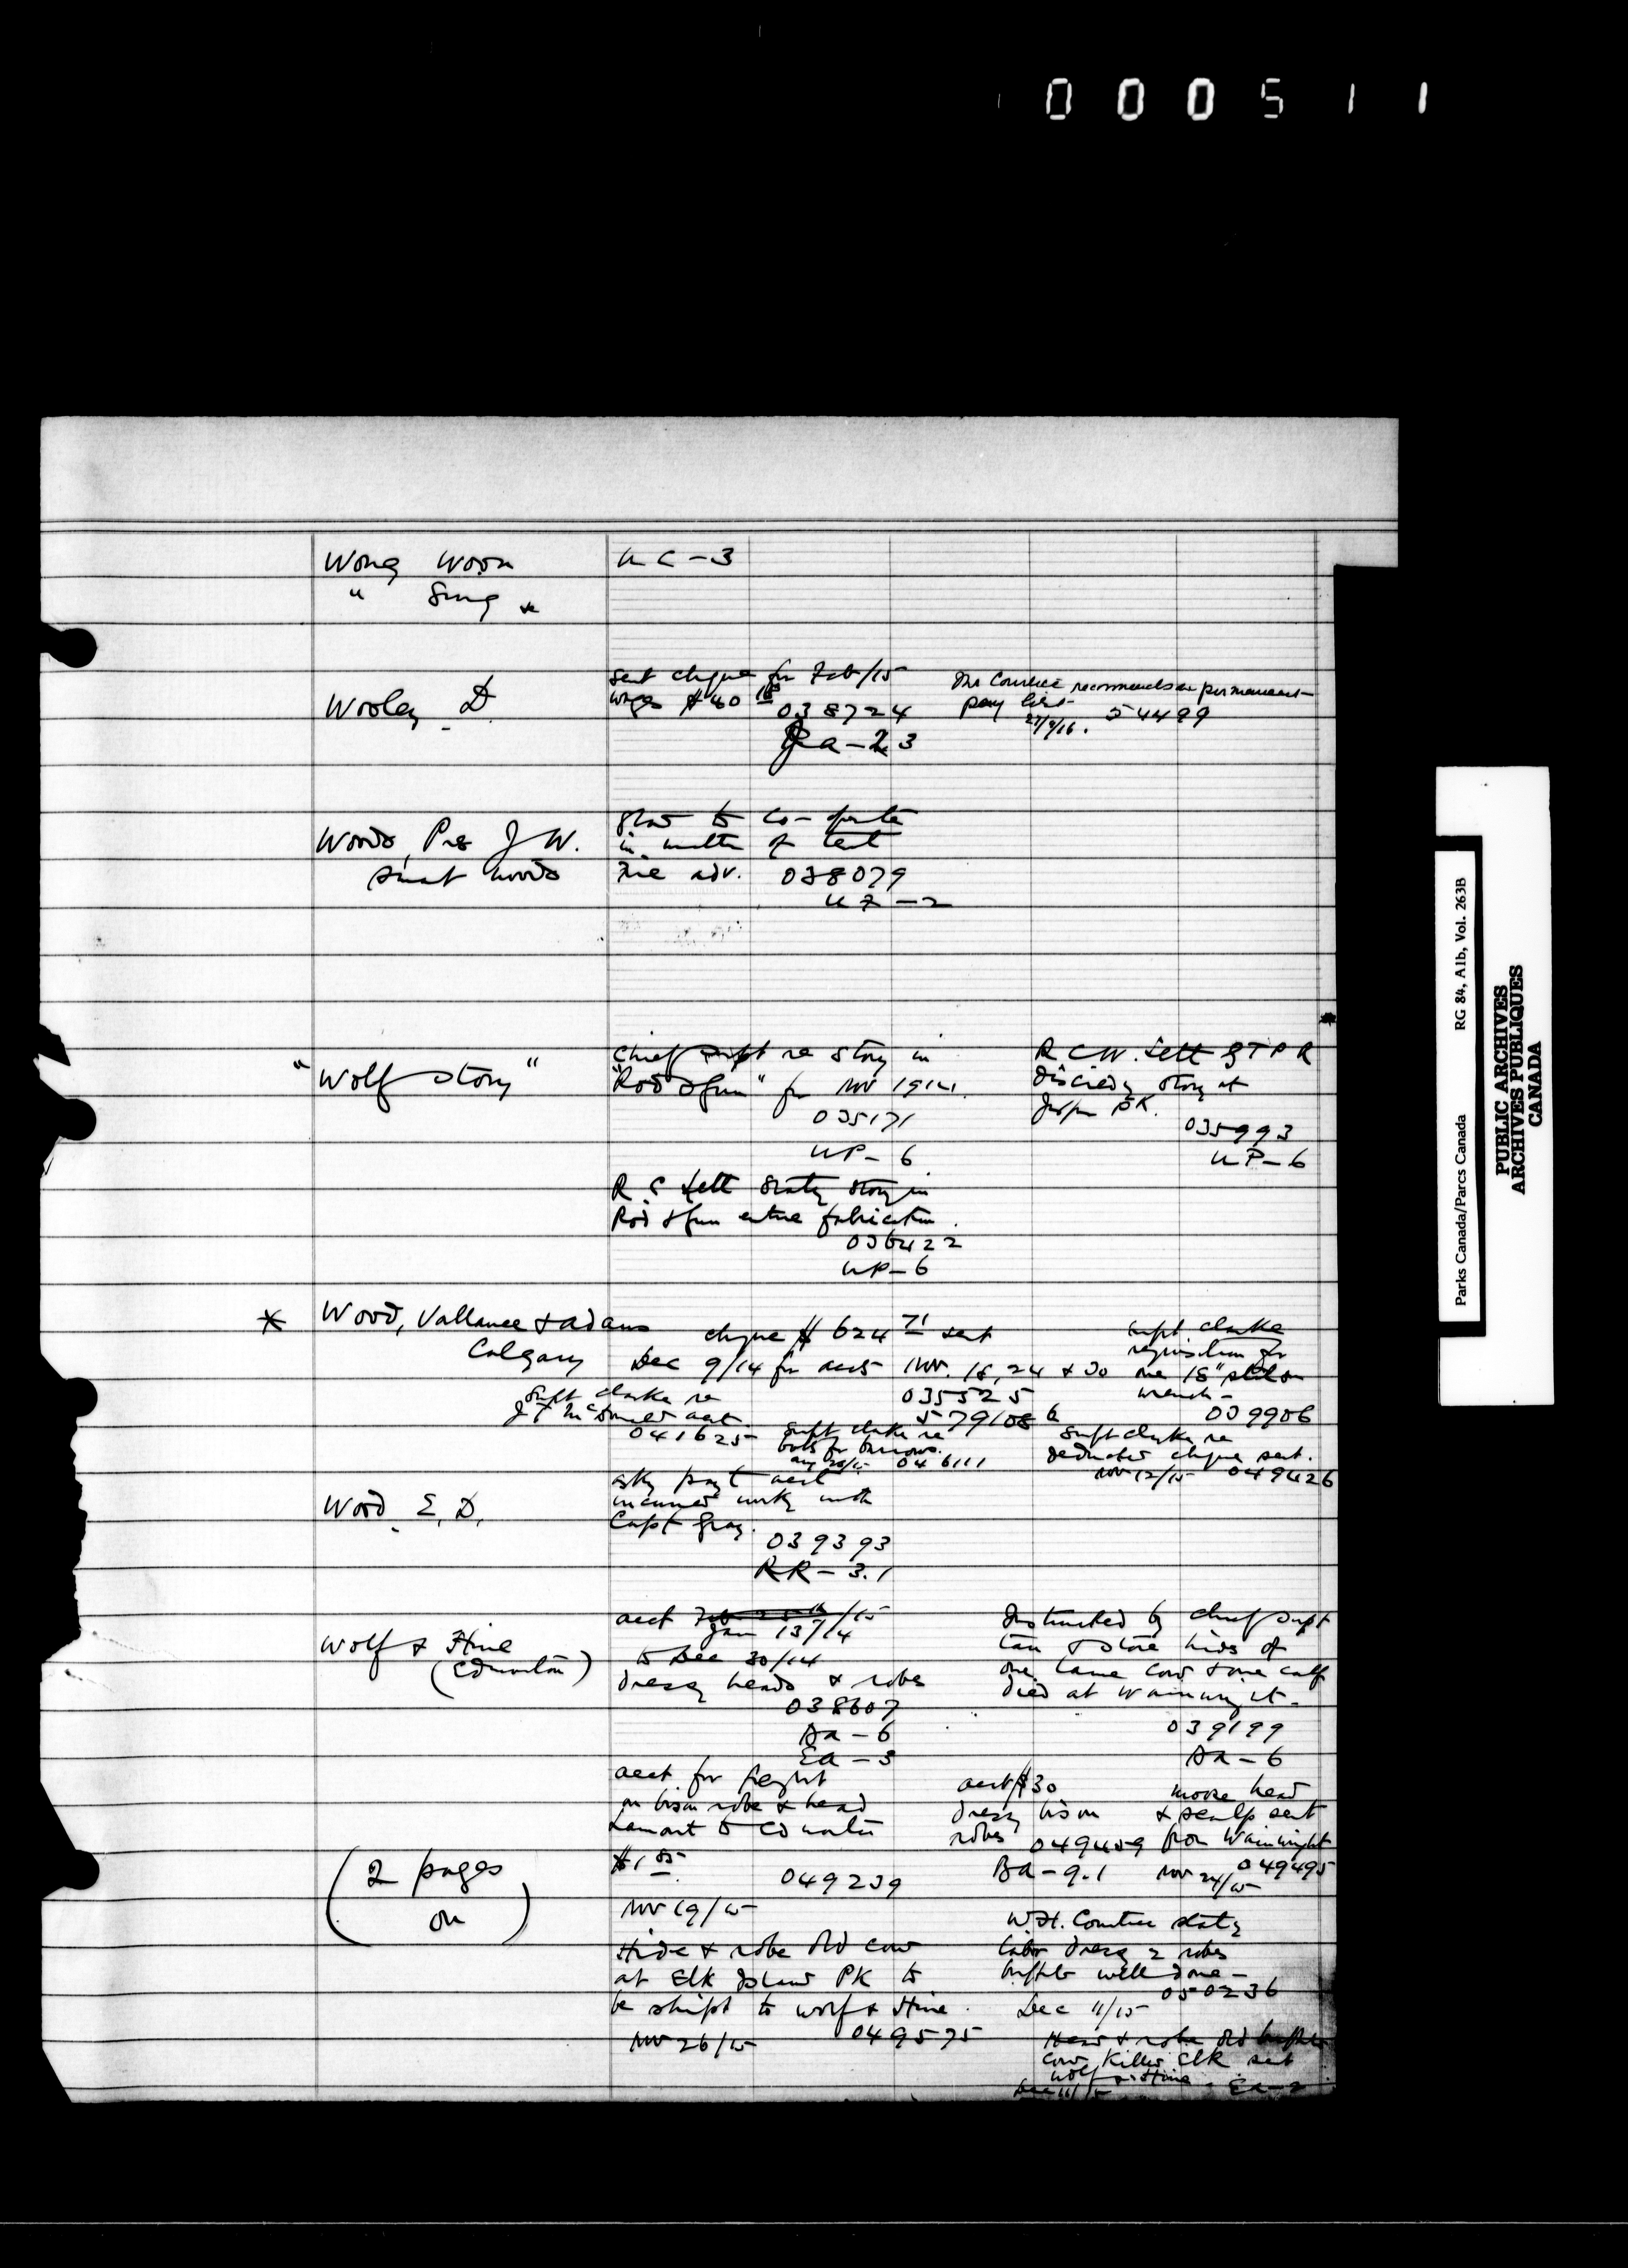 000511
Wong Woon UC-3
" Sing "
Wooley D.
sent cheque for Feb/15
wages $40
038724
Ja-23
recommends on permanent
pay list
27/9/16. 54499
Woods, Pres J W.
to co-operate
in matter of tent
Fire adv. 038079
UF-2
"Wolf Story"
Chief Supt re story in
"Rod & Gun" for Nov 1914.
035171
UP-6
R C W. Lett GTPR
story at
Jasper PK.
035993
UP-6
R C Lett stating story in
Rod & Gun entire fabrication.
036422
UP-6
* Wood, Vallance & Adams
Calgary
cheque $624 71 sent
Dec 9/14 for accts Nov. 18, 24 & 30
035525
579108 6
Supt. Clarke
requisition for
one 18" stilson
wrench -
039906
Supt Clarke re
J T McDonald acct.
041625
Supt Clarke re
bolts for
Aug 20/15 046111
Supt Clarke re
cheque sent.
Nov 12/15 049426
Wood, E. D.
askg payt acct
incurred workg with
Capt Gray.
039393
RR-3.1
Wolf & Hine
(Edmonton)
acct Feb 25th/15
Jan 13/14
to Dec 30/14
dressg heads & robes
038607
Aa-6
Ea-3
Instructed by Chief Supt
tan & store hides of
one lame cow & one calf
died at Wainwright.
039199
Aa-6
acct for freight
on bison robe & head
Lamont to Edmonton
$1 85
049239
Nov 19/15
acct $30
dressg bison
robes 049459
Ba-9.1
moose head
& scalp sent
from Wainwright
049495
Nov 24/15
(2 pages
on)
Hide & robe old cow
at Elk Island PK to
be shipt to Wolf & Hine.
Nov 26/15 049575
W.H. Comstree statg
labor dressg 2 robes
buffalo well done -
050236
Dec 11/15
Head & robe old buffalo
cow killed Elk sent
Wolf & Hine. Ea-2
Dec 11/15
Parks Canada/Parcs Canada RG 84, A1b, Vol. 263B
PUBLIC ARCHIVES
ARCHIVES PUBLIQUES
CANADA